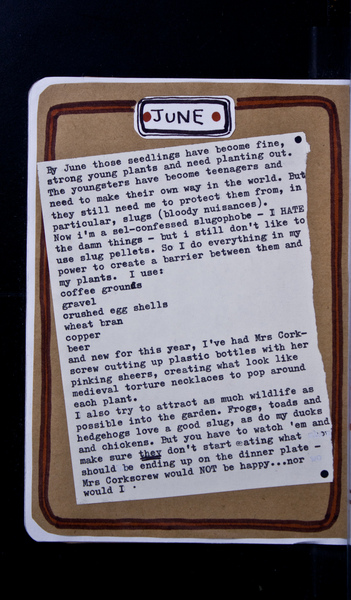 JUNE
By June those seedlings have become fine,
strong young plants and need planting out.
The youngsters have become teenagers and
need to make their own way in the world. But
they still need me to protect them from, in
particular, slugs (bloody nuisances).
Now i'm a sel-confessed slugophobe - I HATE
the damn things - but i still don't like to
use slug pellets. So I do everything in my
power to create a barrier between them and
my plants. I use:
coffee grounds
gravel
crushed egg shells
wheat bran
copper
beer
and new for this year, I've had Mrs Cork-
screw cutting up plastic bottles with her
pinking sheers, creating what look like
medieval torture necklaces to pop around
each plant.
I also try to attract as much wildlife as
possible into the garden. Frogs, toads and
hedgehogs love a good slug, as do my ducks
and chickens. But you have to watch 'em and
make sure they don't start eating what
should be ending up on the dinner plate -
Mrs Corkscrew would NOT be happy...nor
would I .